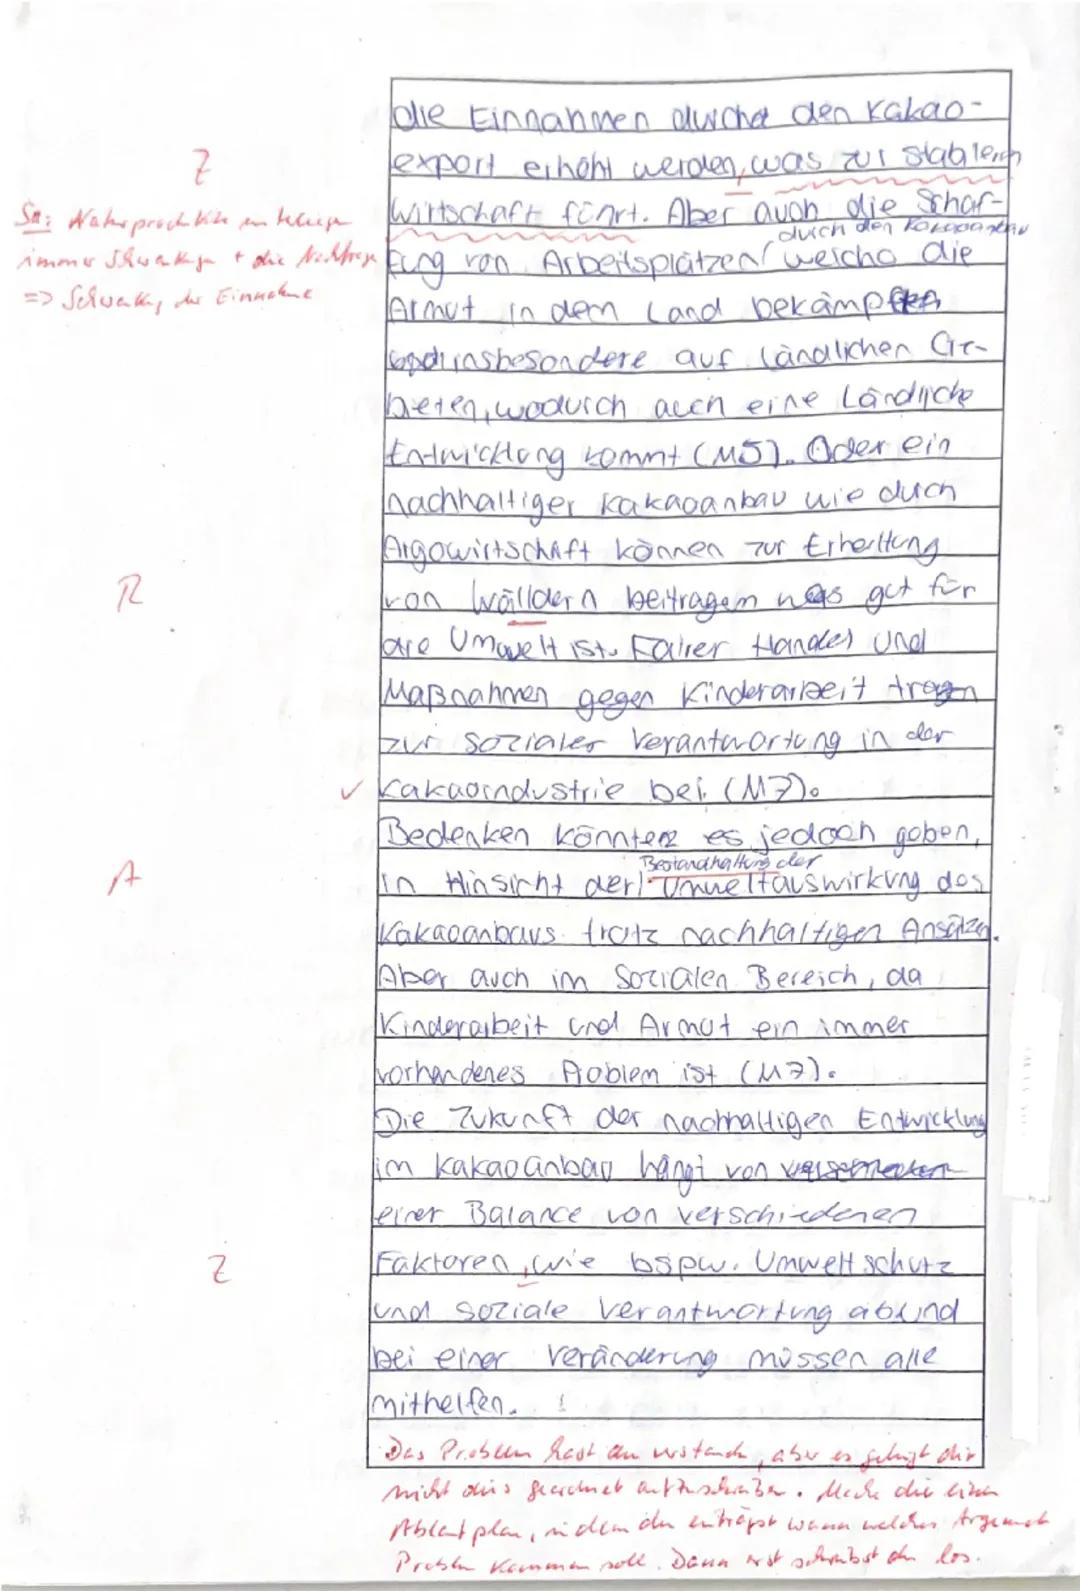 die Einnahmen durch den Kakao-
export erhöht werden, was zur stabilen
Z
Wirtschaft führt. Aber auch die Schaf-
durch den Kakaoanbau
Sa: Naturprodukte
immer Schwankungen + die Nachfrage
=> Schwankung der Einnahme
fung von Arbeitsplätzen welche die
Armut in dem Land bekämpfen
insbesondere auf ländlichen Ge-
bieten, wodurch auch eine Ländliche
Entwicklung kommt (M5). Oder ein
nachhaltiger Kakaoanbau wie duch
Argowirtschaft können zur Erhaltung
R
von Wälldern beitragem was gut für
die Umwelt ist. Fairer Handel und
Maßnahmen gegen Kinderarbeit tragen
zur sozialer Verantwortung in der
✓ Kakaoindustrie bei (M7).
Bedenken könnte es jedoch geben,
Bestandhaltung der
A
in Hinsicht der Umweltauswirkung des
Kakaoanbaus trotz nachhaltigen Ansätzen.
Aber auch im Sozialen Bereich, da
Kinderarbeit und Armut ein immer
vorhandenes Problem ist (M7).
Die Zukunft der nachhaltigen Entwicklung
im Kakaoanbau hängt von
einer Balance von verschiedenen
Z
Faktoren, wie bspw. Umweltschutz
und soziale Verantwortung ab und
bei einer Veränderung müssen alle
mithelfen. !
Das Problem hast du verstanden, aber es gelingt dir
nicht dies geordnet aufzuschreiben. Mache dir einen
Ablaufplan, in dem du einträgst wann welches Argument
Problem kommen soll. Dann erst schreibst du los.